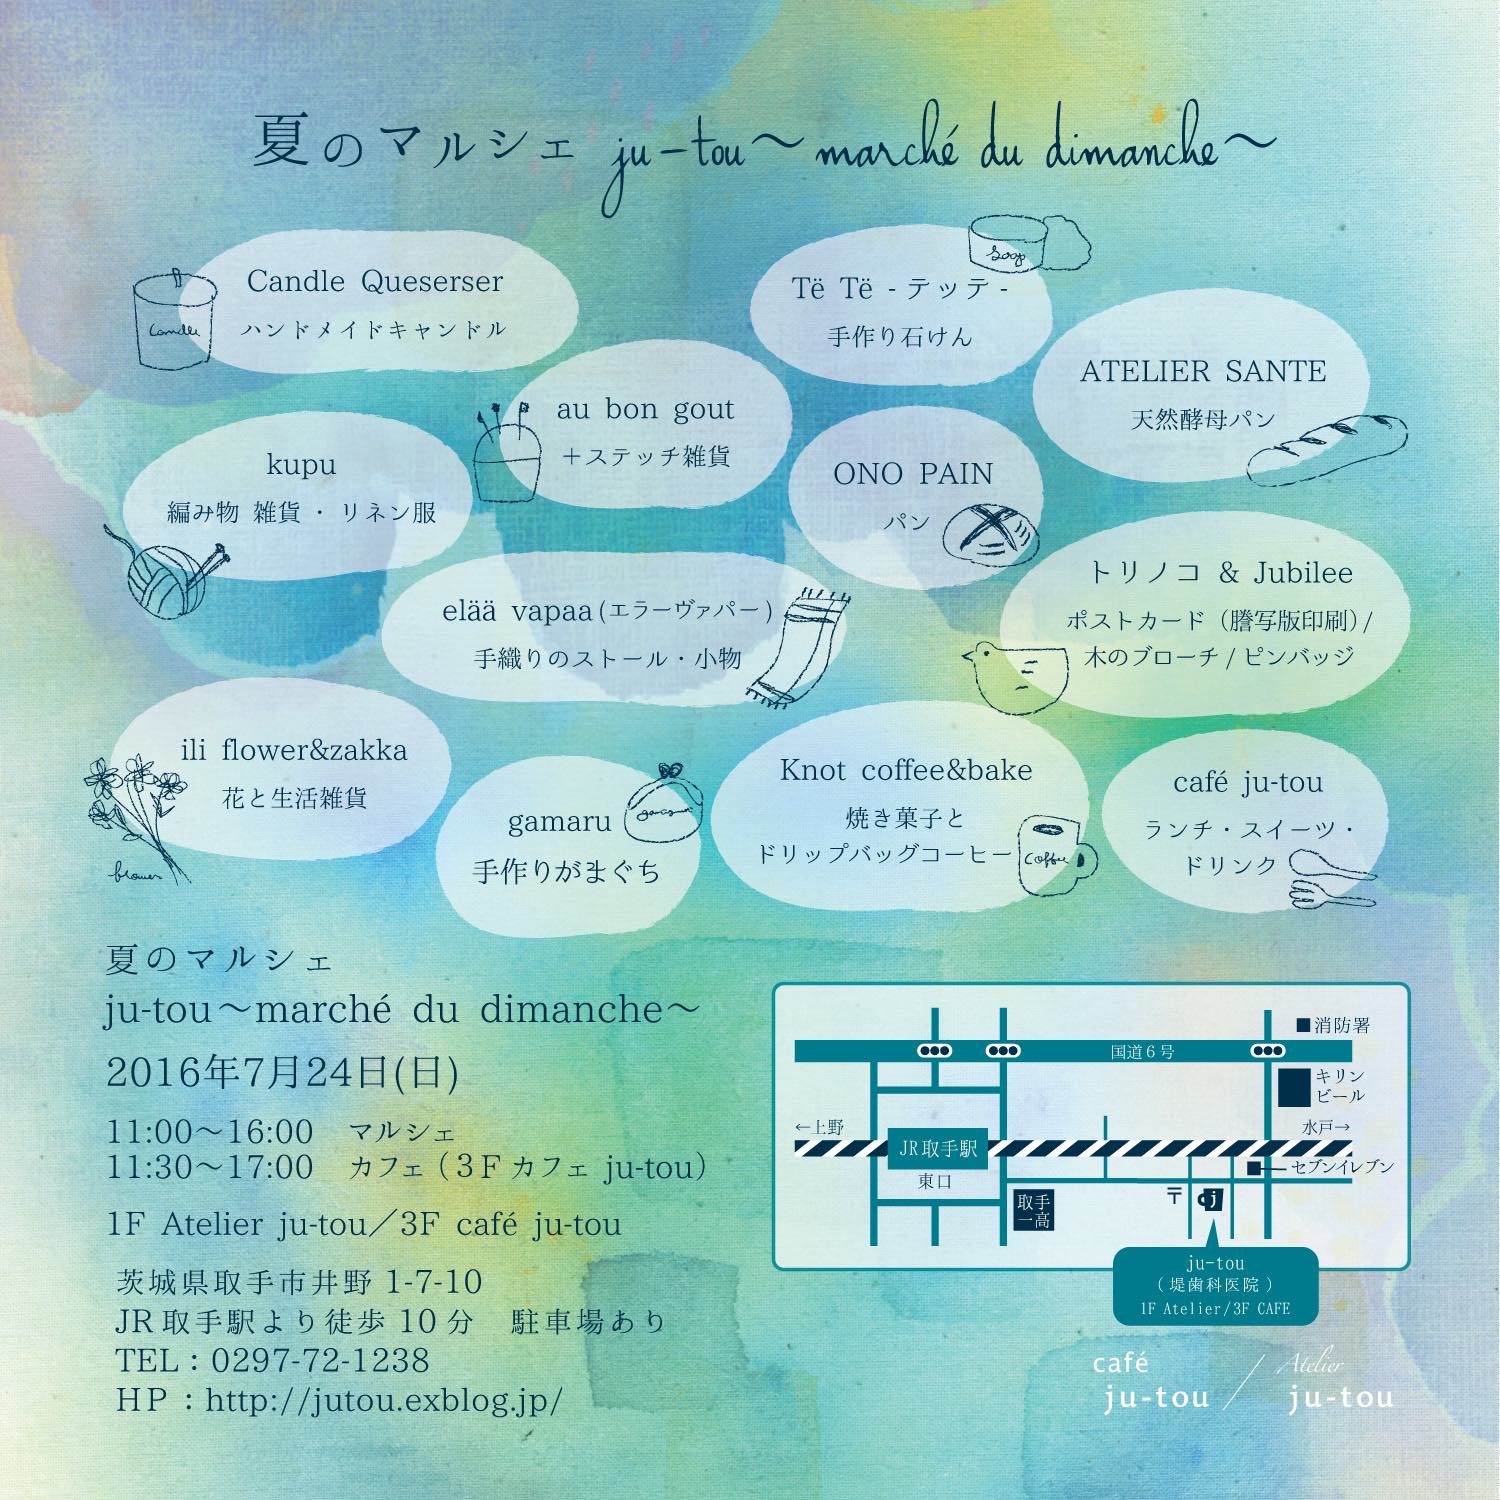 夏のマルシェ ju-tou～marché du dimanche～
Candle Queserser
ハンドメイドキャンドル
Candle
Të Të - テッテ -
手作り石けん
Soap
ATELIER SANTE
天然酵母パン
au bon gout
＋ステッチ雑貨
kupu
編み物 雑貨・リネン服
ONO PAIN
パン
elää vapaa(エラーヴァパー)
手織りのストール・小物
トリノコ & Jubilee
ポストカード（謄写版印刷）/
木のブローチ / ピンバッジ
ili flower&zakka
花と生活雑貨
gamaru
手作りがまぐち
Knot coffee&bake
焼き菓子と
ドリップバッグコーヒー
Coffee
café ju-tou
ランチ・スイーツ・
ドリンク
夏のマルシェ
ju-tou～marché du dimanche～
2016年7月24日(日)
11:00～16:00 マルシェ
11:30～17:00 カフェ（３Ｆカフェ ju-tou）
1F Atelier ju-tou／3F café ju-tou
茨城県取手市井野 1-7-10
JR取手駅より徒歩 10 分　駐車場あり
TEL：0297-72-1238
ＨＰ：http://jutou.exblog.jp/
■消防署
国道６号
キリン
ビール
←上野
水戸→
JR取手駅
東口
セブンイレブン
取手
一高
〒
j
ju-tou
（堤歯科医院）
1F Atelier/3F CAFE
café
ju-tou
Atelier
ju-tou